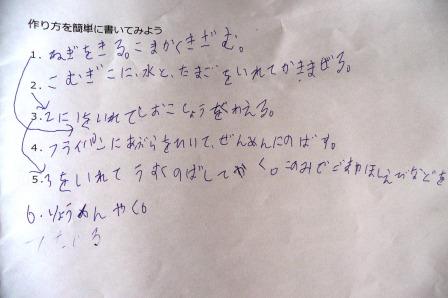 作り方を簡単に書いてみよう
1. ねぎをきる。こまかくきざむ。
2. こむぎこに、水と、たまごをいれてかきまぜる。
3. 2に1をいれてしおこしょうをくわえる。
4. フライパンにあぶらをひいて、ぜんめんにのばす。
5. 3をいれてうすくのばしてやく。このみでごまやほしえびなどを
6. りょうめんやく。